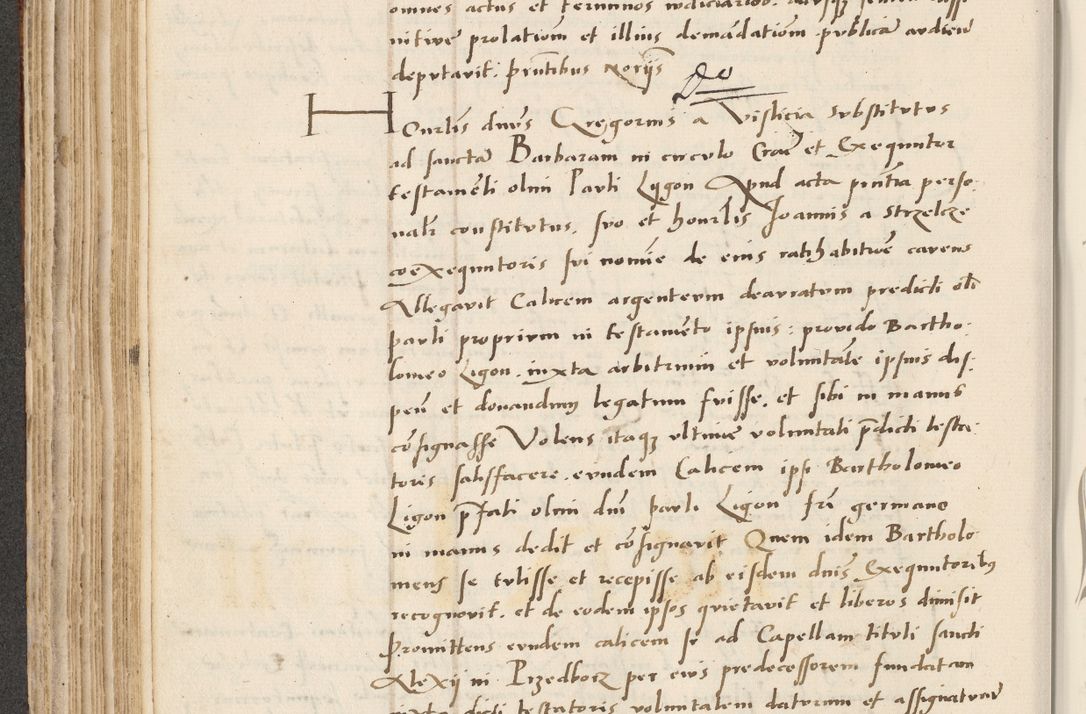 omnes actus et terminos iudiciarios
nitive prolationem et illius demandationem publicam audien
deputavit. pruntibus Notariis
Do
Honrlis dnus Gregorius a Vislicia substitutus
ad sanctam Barbaram in circulo Crac et Exequutor
testamenti olim Pauli Ligon Apud acta pruntia perso
nalr constitutus. suo et honrlis Joannis a Strzelcze
coexequutoris sui nomine de eius ratihabitione cavens
Allegavit Calicem argenteum deauratum predicti olim
pauli proprium in testamento ipsius: provido Bartho
lomeo Ligon. iuxta arbitrium et voluntatem ipsius dis
pen et donandum legatum fuisse. et sibi in manus
consignasse Volens itaque ultime voluntati predicti testa
toris satisfacere. eundem Calicem ipsi Bartholomeo
Ligon prefati olim dni pauli Ligon fri germano
in manus dedit et consignavit Quem idem Bartholo
meus se tulisse et recepisse ab eisdem dnis Exequutoribus
recognovit. et de eodem ipsos quietavit et liberos dimisit
Promittens eundem calicem se ad Capellam tituli sancti
Alexii in Przedborz per eius predecessorem fundatam
iuxta dicti testatoris voluntatem daturum et assignaturum